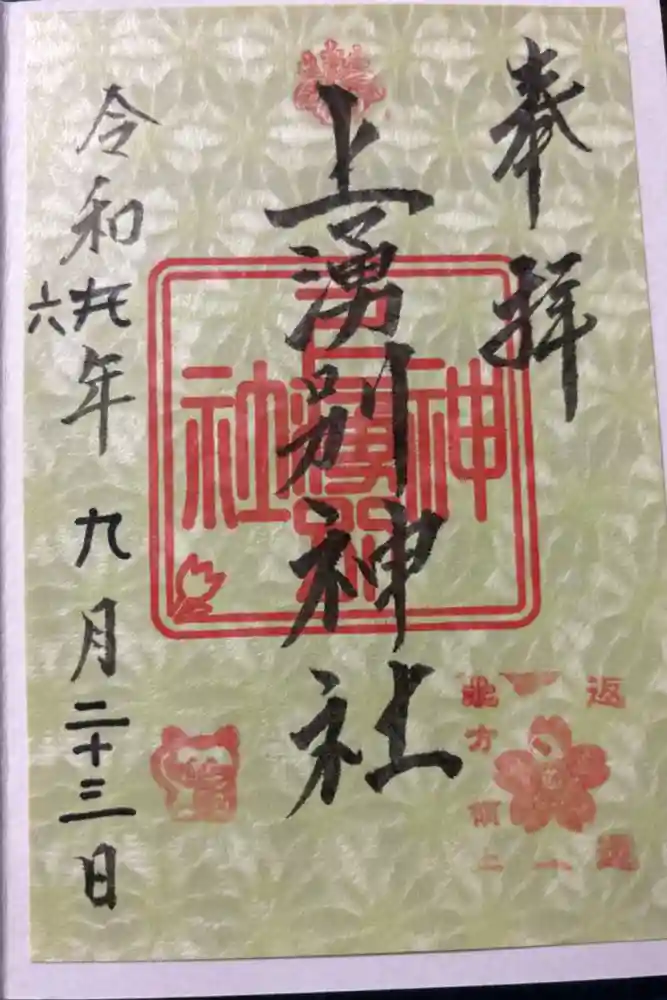 奉拝
上湧別神社
令和六年九月二十三日
上湧別
神社
返還
北方領土